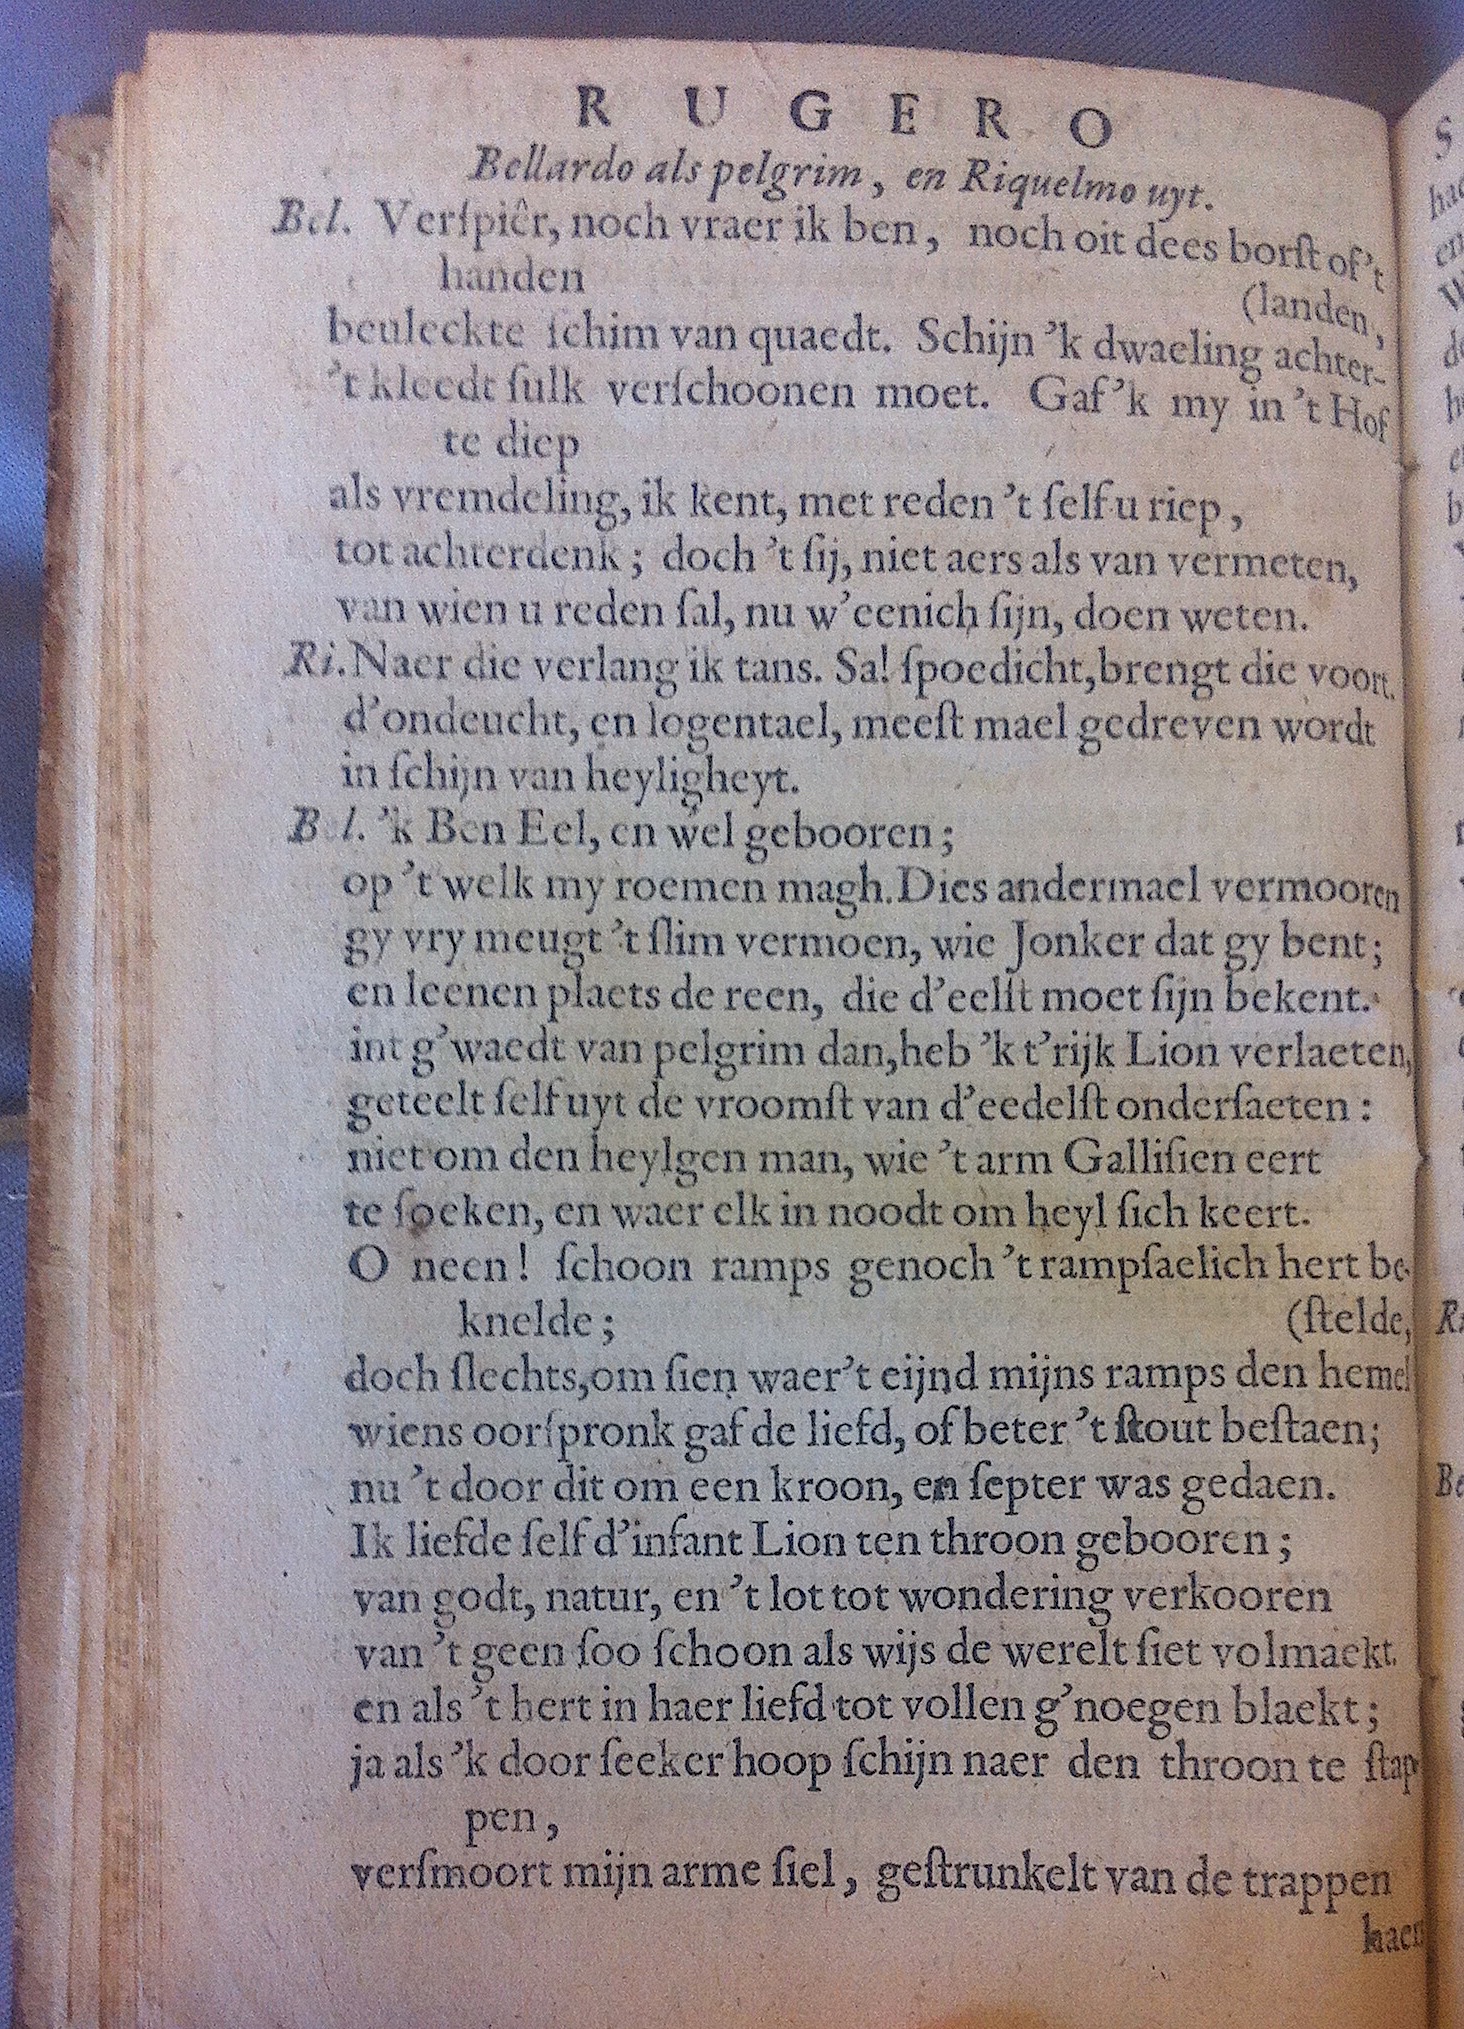 RUGERO
Bellardo als pelgrim, en Riquelmo uyt.
Bel. Verſpiêr, noch vraer ik ben, noch oit dees borſt of 't
handen
(landen,
beuleckte ſchim van quaedt. Schijn 'k dwaeling achter-
't kleedt ſulk verſchoonen moet. Gaf 'k my in 't Hof
te diep
als vremdeling, ik kent, met reden 't ſelf u riep,
tot achterdenk; doch 't ſij, niet aers als van vermeten,
van wien u reden ſal, nu w'eenich ſijn, doen weten.
Ri. Naer die verlang ik tans. Sa! ſpoedicht, brengt die voort.
d'ondeucht, en logentael, meeſt mael gedreven wordt
in ſchijn van heyligheyt.
Bel. 'k Ben Eel, en wel gebooren;
op 't welk my roemen magh. Dies andermael vermooren
gy vry meugt 't ſlim vermoen, wie Jonker dat gy bent;
en leenen plaets de reen, die d'eelſt moet ſijn bekent.
int g'waedt van pelgrim dan, heb 'k t'rijk Lion verlaeten,
geteelt ſelf uyt de vroomſt van d'eedelſt onderſaeten:
niet om den heylgen man, wie 't arm Galliſien eert
te ſoeken, en waer elk in noodt om heyl ſich keert.
O neen! ſchoon ramps genoch 't rampſaelich hert be-
knelde; (ſtelde,
doch ſlechts, om ſien waer't eijnd mijns ramps den hemel
wiens oorſpronk gaf de liefd, of beter 't ſtout beſtaen;
nu 't door dit om een kroon, en ſepter was gedaen.
Ik liefde ſelf d'infant Lion ten throon gebooren;
van godt, natur, en 't lot tot wondering verkooren
van 't geen ſoo ſchoon als wijs de werelt ſiet volmaekt.
en als 't hert in haer liefd tot vollen g'noegen blaekt;
ja als 'k door ſeeker hoop ſchijn naer den throon te ſtap-
pen,
verſmoort mijn arme ſiel, geſtrunkelt van de trappen
haer